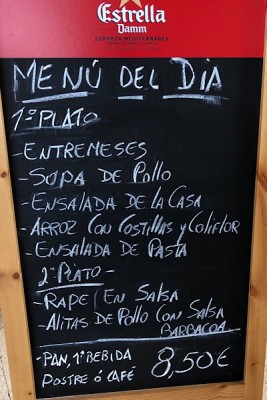 Estrella
Damm
CERVEZA MEDITERRÁNEA
MENÚ DEL DIA
1º PLATO
- ENTREMESES
- SOPA DE POLLO
- ENSALADA DE LA CASA
- ARROZ CON COSTILLAS Y COLIFLOR
- ENSALADA DE PASTA
2º PLATO -
- RAPE EN SALSA
- ALITAS DE POLLO CON SALSA
BARBACOA
- PAN, 1ª BEBIDA
POSTRE Ó CAFÉ 8,50€